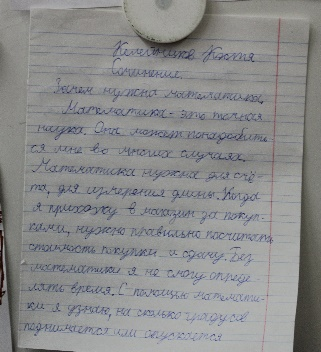 Костя
Сочинение.
Зачем нужна математика.
Математика - это точная
наука. Она может понадобить-
ся мне во многих случаях.
Математика нужна для счё-
та, для измерения длины. Когда
я прихожу в магазин за покуп-
ками, нужно правильно посчитать
стоимость покупки и сдачу. Без
математики я не смогу опреде-
лять время. С помощью математи-
ки я узнаю, на сколько градусов
поднимается или опускается